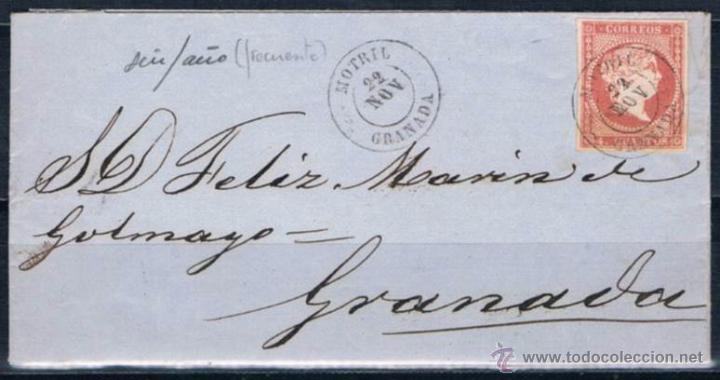 sin/año (frecuente)
MOTRIL
22
NOV
GRANADA
CORREOS
MOTRIL
22
NOV
GRANADA
S.D. Feliz Marin de
Golmayo=
Granada
www.todocoleccion.net